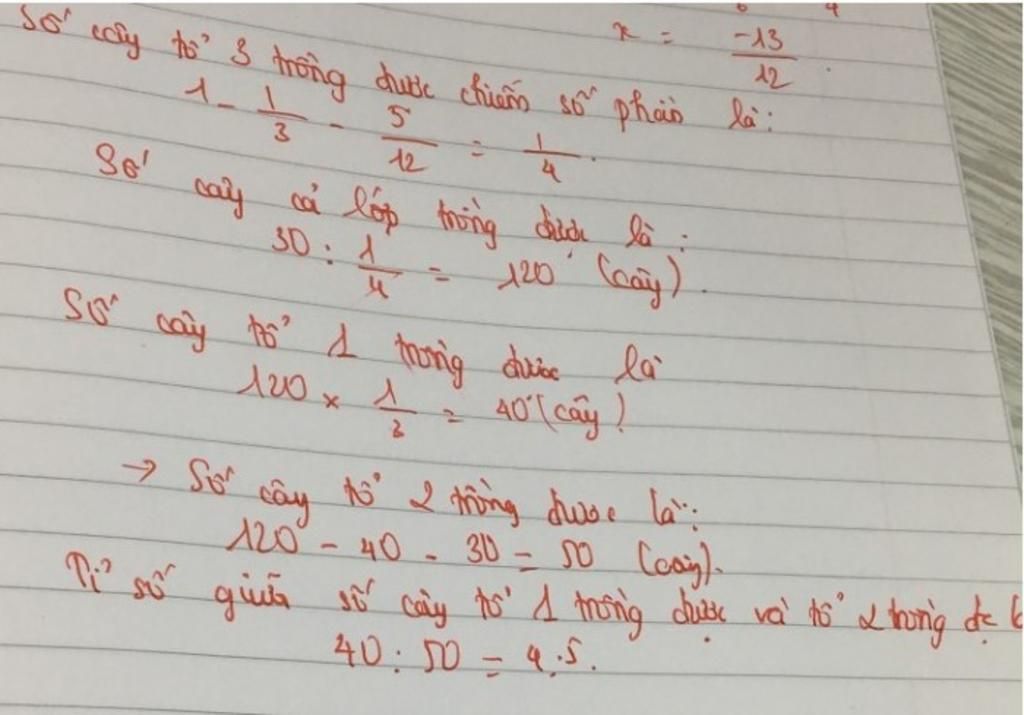 x = -13/12.
Số cây tổ 3 trồng được chiếm số phần là:
1 - 1/3 - 5/12 = 1/4.
Số cây cả lớp trồng được là:
30 : 1/4 = 120 (cây).
Số cây tổ 1 trồng được là
120 × 1/3 = 40 (cây)
→ Số cây tổ 2 trồng được là:
120 - 40 - 30 = 50 (cây).
Tỉ số giữa số cây tổ 1 trồng được và tổ 2 trồng đc
40 : 50 = 4.5.